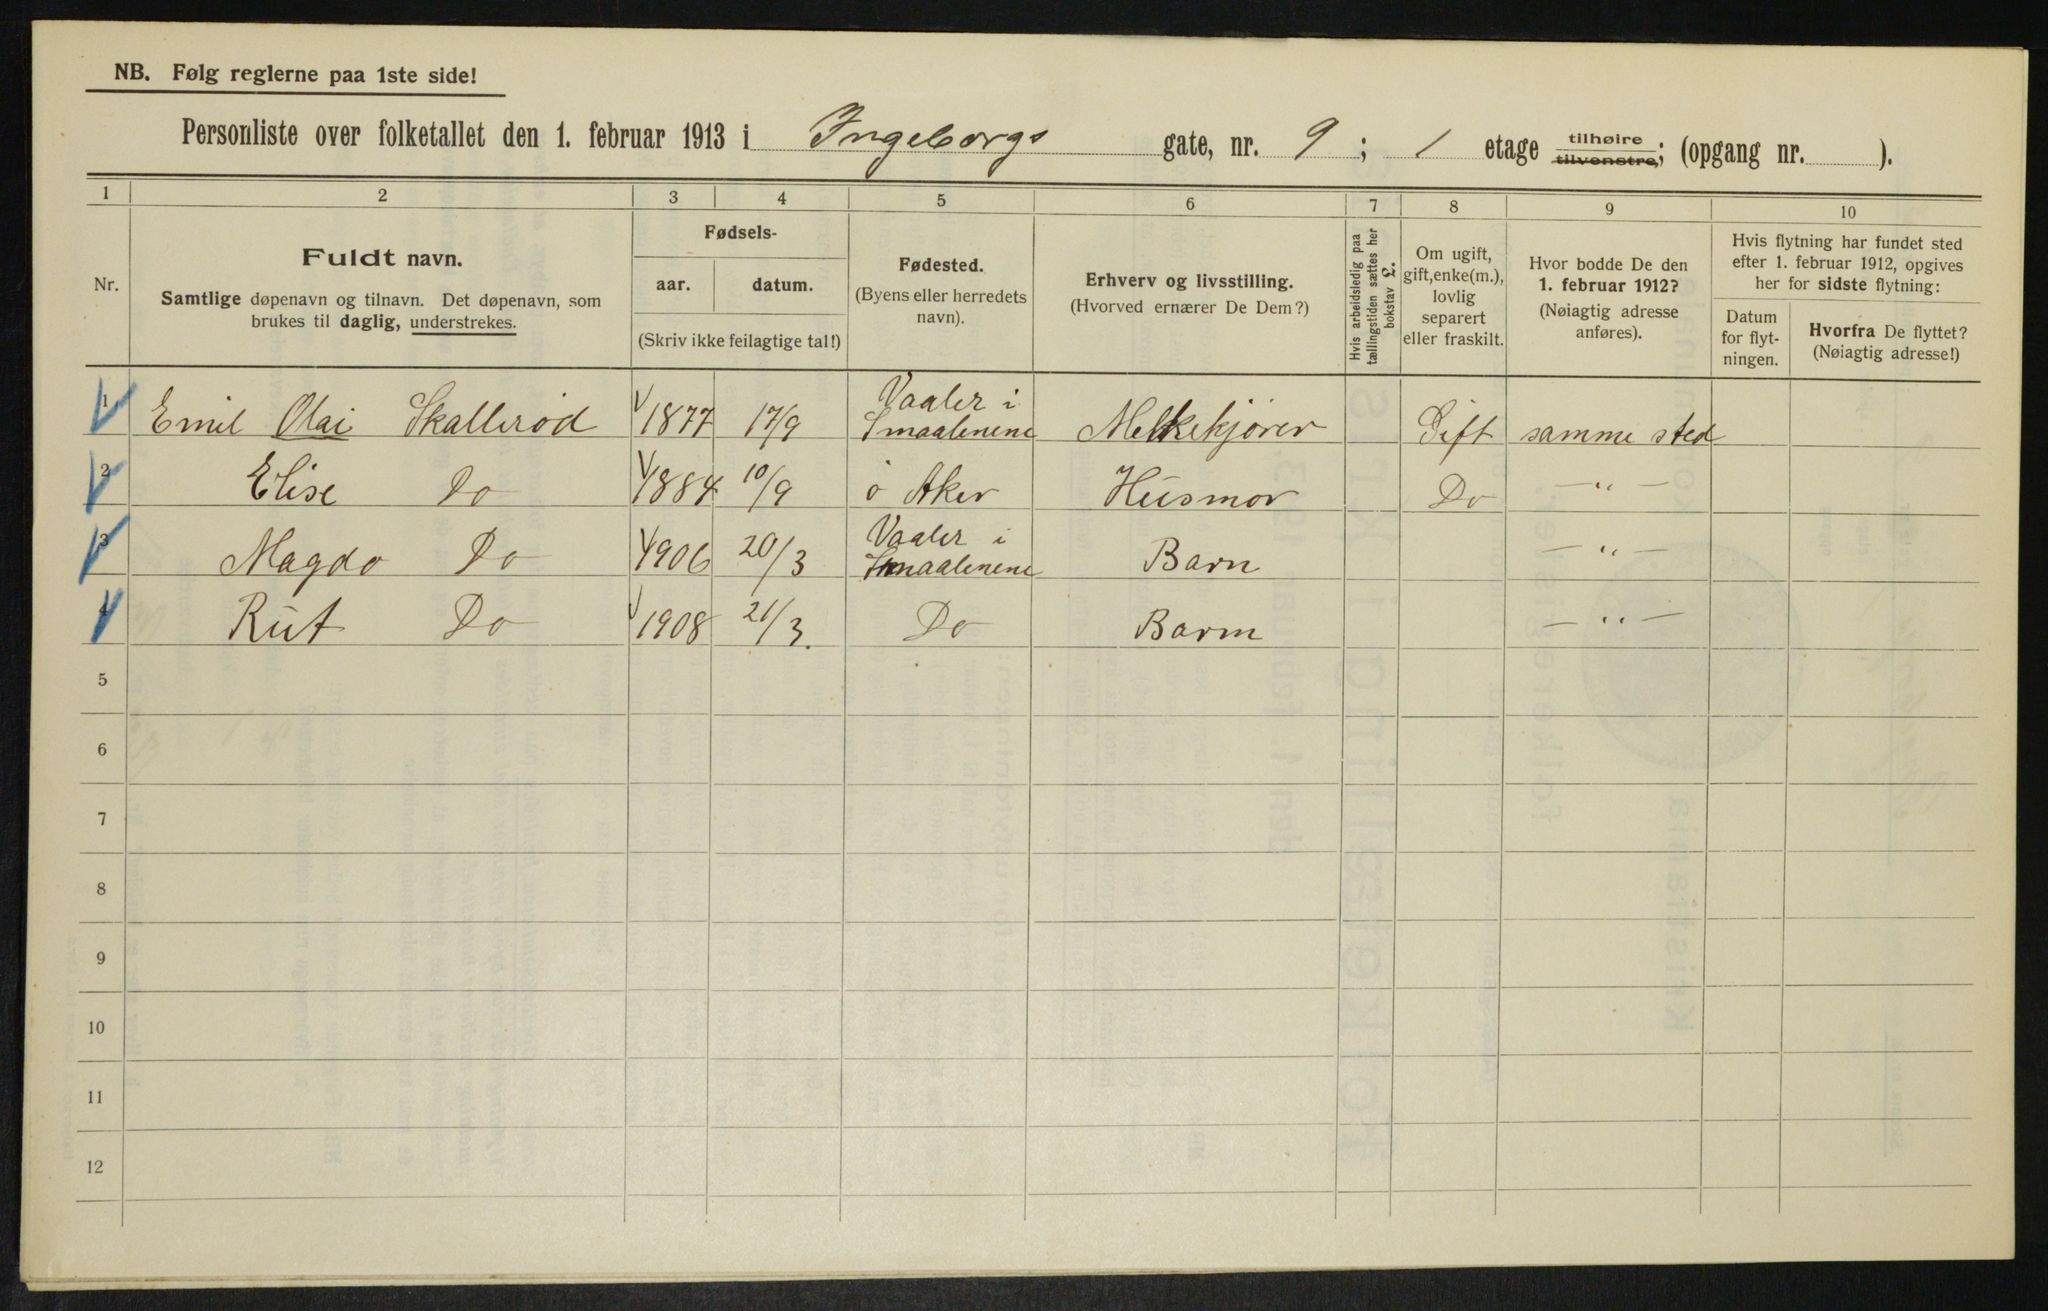 NB. Følg reglerne paa 1ste side!
Personliste over folketallet den 1. februar 1913 i Ingeborgs gate, nr. 9; 1 etage tilhøire tilvenstre; (opgang nr. ).
1 2 3 4 5 6 7 8 9 10
Nr.
Fuldt navn.
Samtlige døpenavn og tilnavn. Det døpenavn, som
brukes til daglig, understrekes.
Fødsels-
aar. datum.
(Skriv ikke feilagtige tal!)
Fødested.
(Byens eller herredets
navn).
Erhverv og livsstilling.
(Hvorved ernærer De Dem?)
Hvis arbeidsledig paa
tællingstiden sættes her
bokstav L.
Om ugift,
gift, enke(m.),
lovlig
separert
eller fraskilt.
Hvor bodde De den
1. februar 1912?
(Nøiagtig adresse
anføres).
Hvis flytning har fundet sted
efter 1. februar 1912, opgives
her for sidste flytning:
Datum
for flyt-
ningen.
Hvorfra De flyttet?
(Nøiagtig adresse!)
1 Emil Olai Skallerød 1877 17/9 Vaaler i Smaalenene Melkekjører Gift samme sted
2 Elise Do 1884 10/9 ö Aker Husmor Do — " —
3 Magda Do 1906 20/3 Vaaler i Smaalenene Barn — " —
4 Rut Do 1908 21/3. Do Barn — " —
5
6
7
8
9
10
11
12